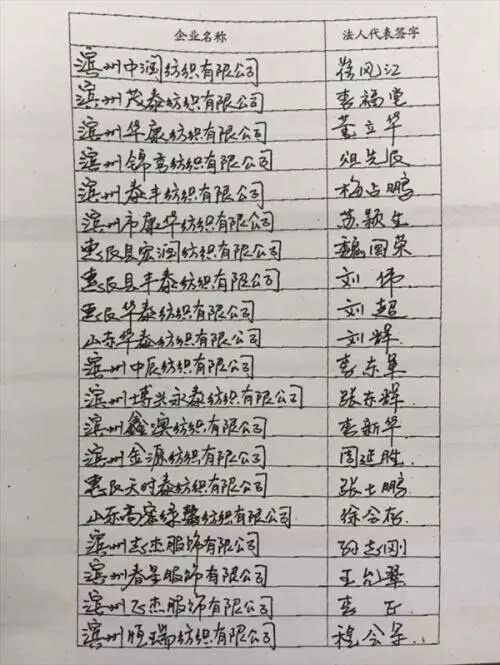 企业名称 法人代表签字
滨州中润纺织有限公司 崔风江
滨州茂泰纺织有限公司 李福堂
滨州华康纺织有限公司 董立华
滨州锦秀纺织有限公司
滨州泰丰纺织有限公司 梅占鹏
滨州市康华纺织有限公司 苏颖生
惠民县宏润纺织有限公司 魏国荣
惠民县丰泰纺织有限公司 刘伟
惠民华泰纺织有限公司 刘超
山东华泰纺织有限公司 刘辉
滨州中辰纺织有限公司 李东军
滨州博兴永泰纺织有限公司 张东辉
滨州鑫澳纺织有限公司 李新华
滨州金源纺织有限公司 周延胜
惠民天时泰纺织有限公司 张士鹏
山东高密绿馨纺织有限公司
滨州志杰服饰有限公司 孙志刚
滨州春星服饰有限公司
滨州飞杰服饰有限公司 李飞
滨州恒瑞纺织有限公司